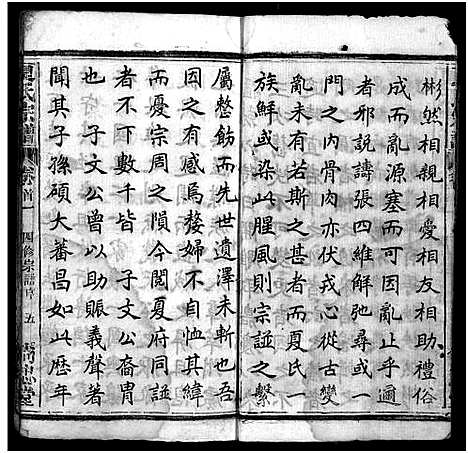 彬然相親相愛相友相助禮俗
成而亂源塞而可因亂止乎邇
者邪說譸張四維解弛尋或一
門之內骨肉亦伏戎心從古變
亂未有若斯之甚者而夏氏一
族鮮或染此腥風則宗譜之繫
屬整飭而先世遺澤未斬也吾
因之有感焉嫠婦不自恤其緯
而憂宗周之隕今閱夏府同譜
者不下數千皆　子文公裔胄
也　子文公曾以助賑義聲著
聞其子孫碩大蕃昌如此歷年
氏宗譜　卷首一　四修宗譜序　五